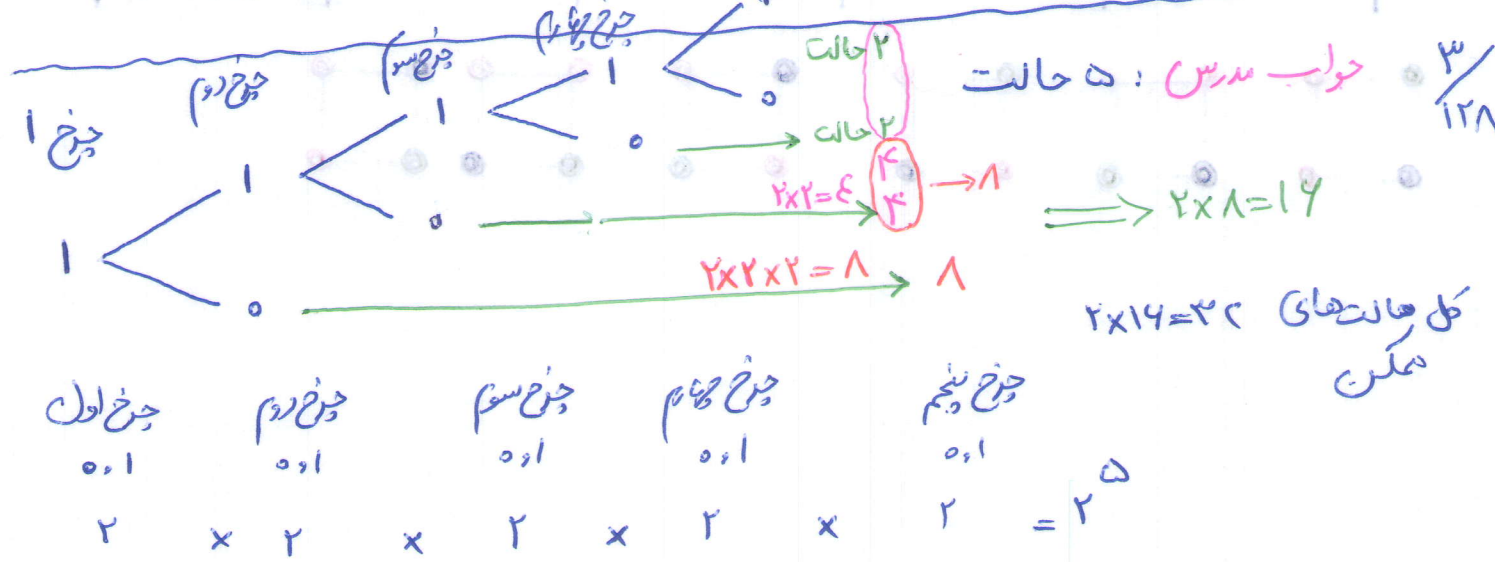 ۳/۱۲۸ جواب مدرس : ۵ حالت
چرخ ۱ چرخ دوم چرخ سوم چرخ چهارم
۱ ۰ ۲ حالت
۱ ۰ ۲ حالت
۱ ۰ ۲×۲=۴ ۴ ۴ ۸ ۲×۸=۱۶
۱ ۰ ۲×۲×۲=۸ ۸
کل حالت‌های ممکن ۲×۱۶=۳۲
چرخ اول چرخ دوم چرخ سوم چرخ چهارم چرخ پنجم
۰،۱ ۰،۱ ۰،۱ ۰،۱ ۰،۱
۲ × ۲ × ۲ × ۲ × ۲ = ۲^۵